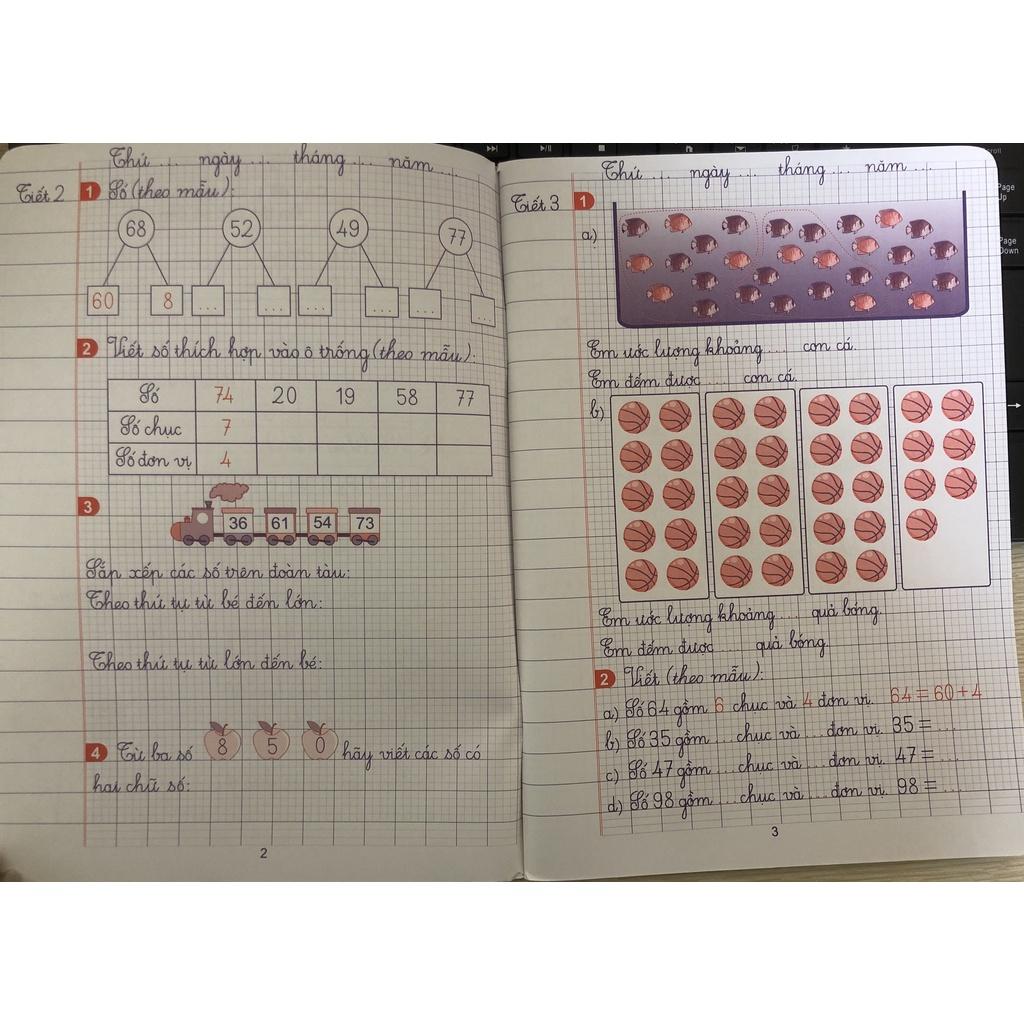 Thứ .... ngày .... tháng .... năm ....
Tiết 2 1 Số (theo mẫu):
68 52 49 77
60 8 ... ... ... ... ... ...
2 Viết số thích hợp vào ô trống (theo mẫu):
Số 74 20 19 58 77
Số chục 7
Số đơn vị 4
3
36 61 54 73
Sắp xếp các số trên đoàn tàu:
Theo thứ tự từ bé đến lớn:
Theo thứ tự từ lớn đến bé:
4 Từ ba số 8 5 0 hãy viết các số có
hai chữ số:
2
Thứ .... ngày .... tháng .... năm ....
Tiết 3 1
a)
Em ước lượng khoảng .... con cá.
Em đếm được .... con cá.
b)
Em ước lượng khoảng .... quả bóng.
Em đếm được .... quả bóng.
2 Viết (theo mẫu):
a) Số 64 gồm 6 chục và 4 đơn vị. 64 = 60 + 4
b) Số 35 gồm ... chục và ... đơn vị. 35 = ...
c) Số 47 gồm ... chục và ... đơn vị. 47 = ...
d) Số 98 gồm ... chục và ... đơn vị. 98 = ...
3
Page
Up
Page
Down